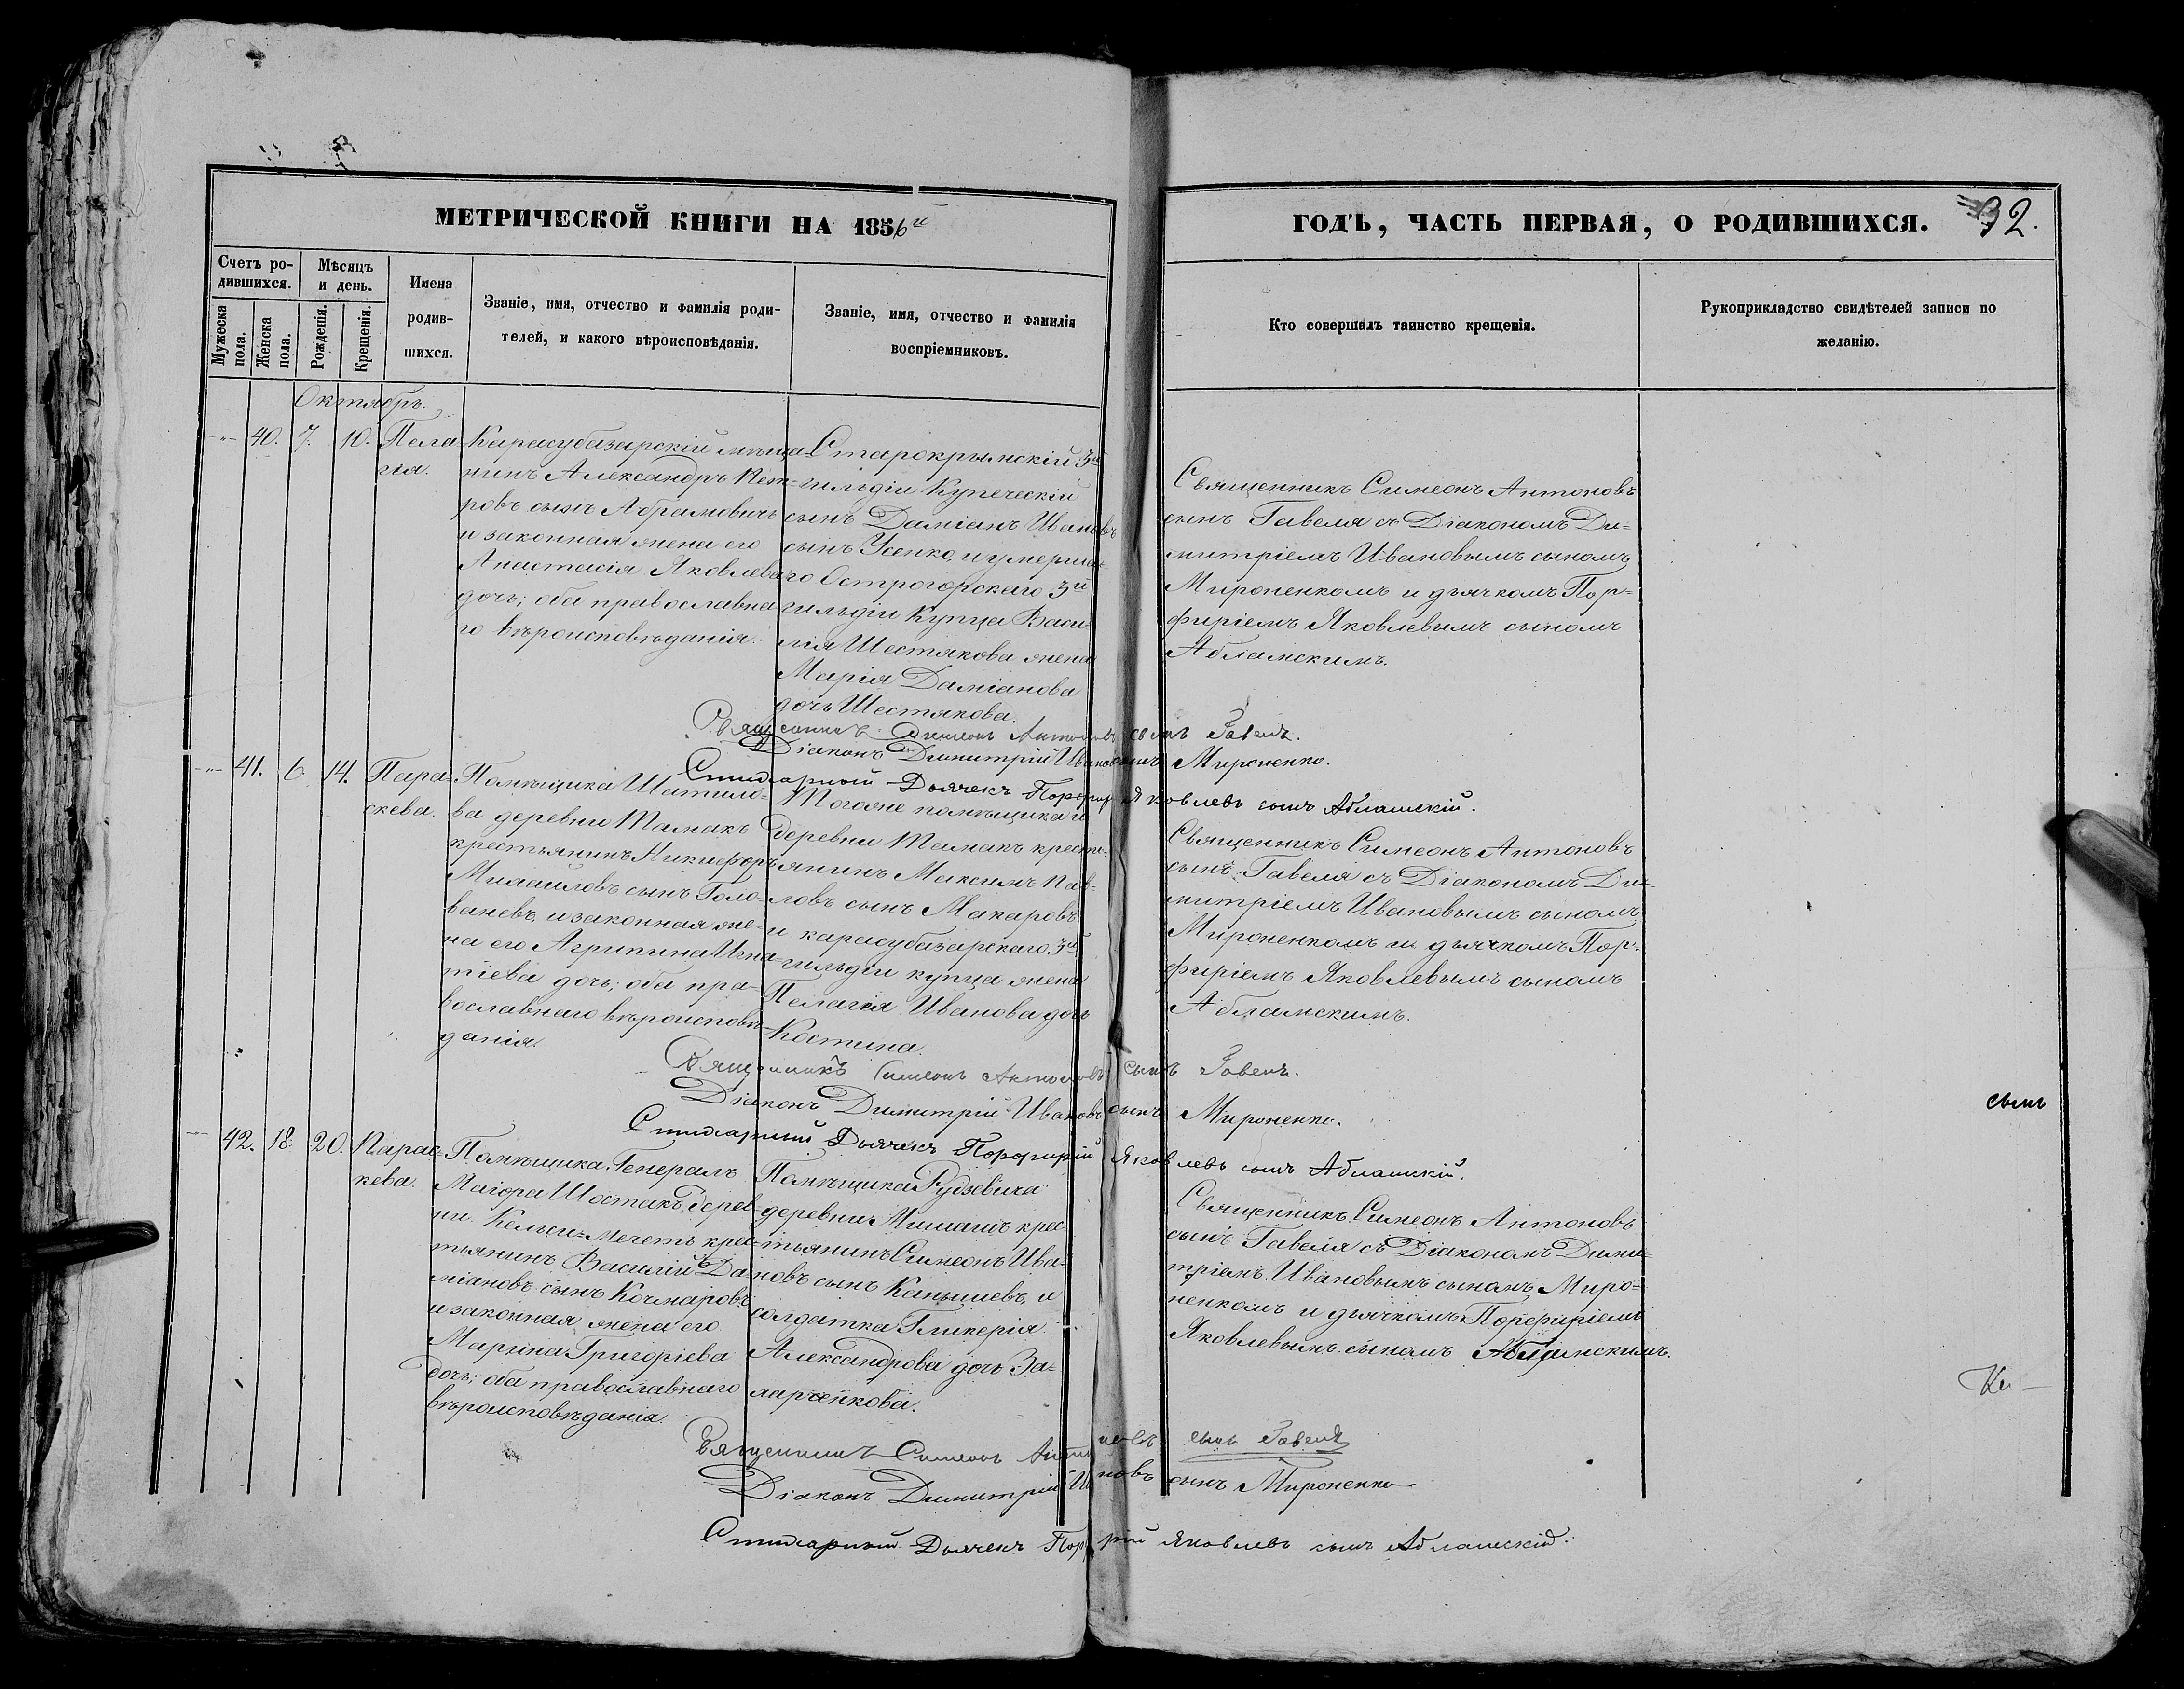 МЕТРИЧЕСКОЙ КНИГИ НА 1856й
ГОДЪ, ЧАСТЬ ПЕРВАЯ, О РОДИВШИХСЯ.
92.
Счетъ ро-
дившихся.
Мѣсяцъ
и день.
Мужеска
пола.
Женска
пола.
Рожденія.
Крещенія.
Имена
родив-
шихся.
Званіе, имя, отчество и фамилія роди-
телей, и какого вѣроисповѣданія.
Званіе, имя, отчество и фамилія
воспріемниковъ.
Кто совершалъ таинство крещенія.
Рукоприкладство свидѣтелей записи по
желанію.
Октябрь.
40. 7. 10.
Пела-
гія.
Карасубазарскій мѣща-
нинъ Александръ Пет-
ровъ сынъ Абрамовичъ
и законная жена его
Анастасія Яковлева
дочь; оба православна-
го вѣроисповѣданія.
Старокрымскій 3й
гильдіи Купеческій
сынъ Даміанъ Ивановъ
сынъ Усенко, и умерша-
го Острогорскаго 3й
гильдіи Купца Васи-
лія Шестякова жена
Марія Даміанова
дочь Шестякова.
Священникъ Симеонъ Антоновъ
сынъ Гавеля съ Діакономъ Ди-
митріемъ Ивановымъ сыномъ
Мироненкомъ и дьячкомъ Пор-
фиріемъ Яковлевымъ сыномъ
Абламскимъ.
Священникъ Симеонъ Антоновъ сынъ Гавеля.
Діаконъ Димитрій Ивановъ сынъ Мироненко.
Стихарный Дьячекъ Порфирій Яковлевъ сынъ Абламскій.
41. 6. 14.
Пара-
скева.
Помѣщика Шатило-
ва деревни Тамакъ
крестьянинъ Никифоръ
Михайловъ сынъ Голо-
ваневъ и законная же-
на его Агрипина Игна-
тіева дочь; оба пра-
вославнаго вѣроисповѣ-
данія.
Тогоже помѣщика и
деревни Тамакъ кресть-
янинъ Максимъ Пав-
ловъ сынъ Макаровъ
и карасубазарскаго 3й
гильдіи купца жена
Пелагея Иванова дочь
Костина.
Священникъ Симеонъ Антоновъ
сынъ Гавеля съ Діакономъ Ди-
митріемъ Ивановымъ сыномъ
Мироненкомъ и дьячкомъ Пор-
фиріемъ Яковлевымъ сыномъ
Абламскимъ.
Священникъ Симеонъ Антоновъ сынъ Гавеля.
Діаконъ Димитрій Ивановъ сынъ Мироненко.
сынъ
Стихарный Дьячекъ Порфирій Яковлевъ сынъ Абламскій.
42. 18. 20.
Парас-
кева.
Помѣщика Генералъ
Маіора Шостакъ дерев-
ни Кельси-Мечеть крес-
тьянинъ Василій Да-
міановъ сынъ Кочмаровъ
и законная жена его
Марина Григоріева
дочь; оба православнаго
вѣроисповѣданія.
Помѣщика Рудзевича
деревни Мишашъ крес-
тьянинъ Симеонъ Ива-
новъ сынъ Канышевъ, и
солдатка Гликерія
Александрова дочь За-
ларченкова.
Священникъ Симеонъ Антоновъ
сынъ Гавеля съ Діакономъ Дими-
тріемъ Ивановымъ сыномъ Миро-
ненкомъ и дьячкомъ Порфиріемъ
Яковлевымъ сыномъ Абламскимъ.
Священникъ Симеонъ Антоновъ сынъ Гавеля
Діаконъ Димитрій Ивановъ сынъ Мироненко
Стихарный Дьячекъ Порфирій Яковлевъ сынъ Абламскій.